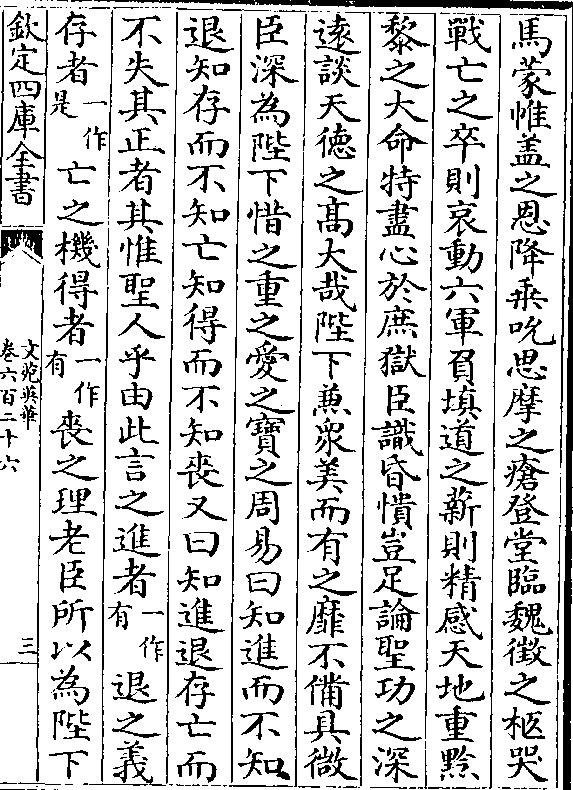 馬蒙惟盖之恩降乗吮思摩之瘡登堂臨魏徴之柩哭
戰亡之卒則哀動六軍負填道之薪則精感天地重黔
黎之大命特盡心於庶獄臣識昏憒豈足論聖功之深
遠談天德之髙大哉陛下兼衆美而有之靡不備具微
臣深為陛下惜之重之愛之寳之周易曰知進而不知
退知存而不知亡知得而不知喪又曰知進退存亡而
不失其正者其惟聖人乎由此言之進者一作有退之義
存者一作是亡之機得者一作有喪之理老臣所以為陛下
欽定四庫全書
文苑英華
卷六百二十六
三